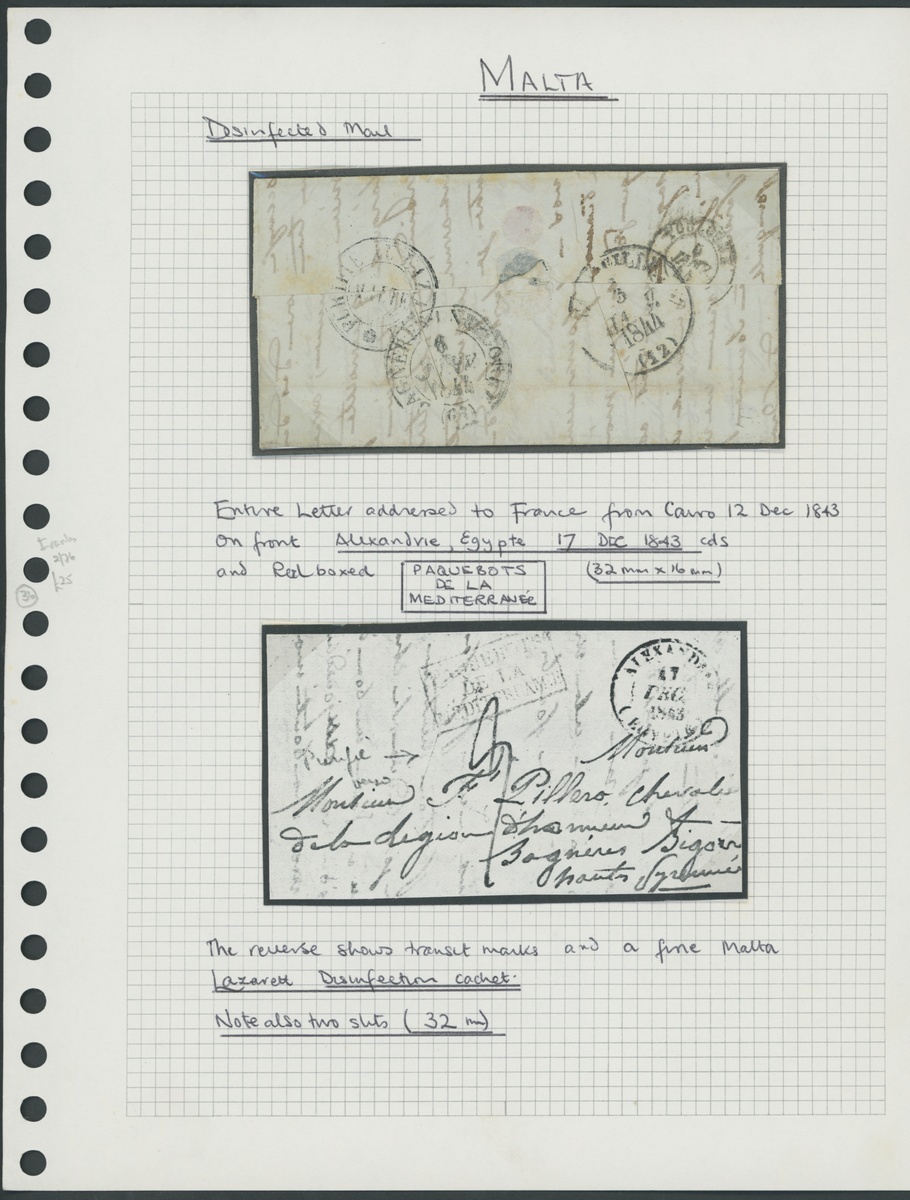 MALTA
Disinfected Mail
1844
(12)
6
(63)
Entire Letter addressed to France from Cairo 12 Dec 1843
On front Alexandrie, Egypte 17 DEC 1843 cds
and Red boxed PAQUEBOTS DE LA MEDITERRANÉE (32 mm x 16 mm)
£25
DE LA
ALEXANDRIE
17
DEC.
1843
Purifié →
verso
Monsieur
Monsieur Fs Pillero, chevalier
de la légion d'honneur
Bagnères Bigorre
hautes Pyrennées
The reverse shows transit marks and a fine Malta
Lazarett Disinfection cachet.
Note also two slits (32 mm)